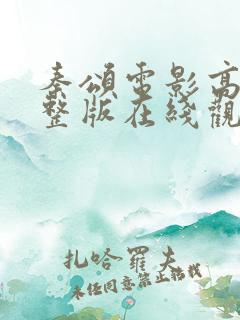 秦頌電影高
整版在綫觀
扎哈羅夫
未经同意禁止转载